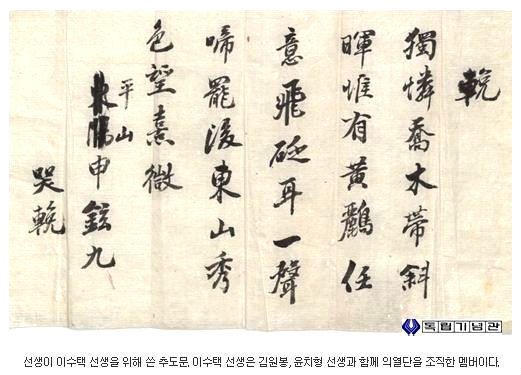 輓
獨憐喬木帶斜
暉惟有黃鸝任
意飛砭耳一聲
啼罷後東山秀
色望熹微
平山
申鉉九
哭輓
독립기념관
선생이 이수택 선생을 위해 쓴 추도문. 이수택 선생은 김원봉, 윤치형 선생과 함께 의열단을 조직한 멤버이다.